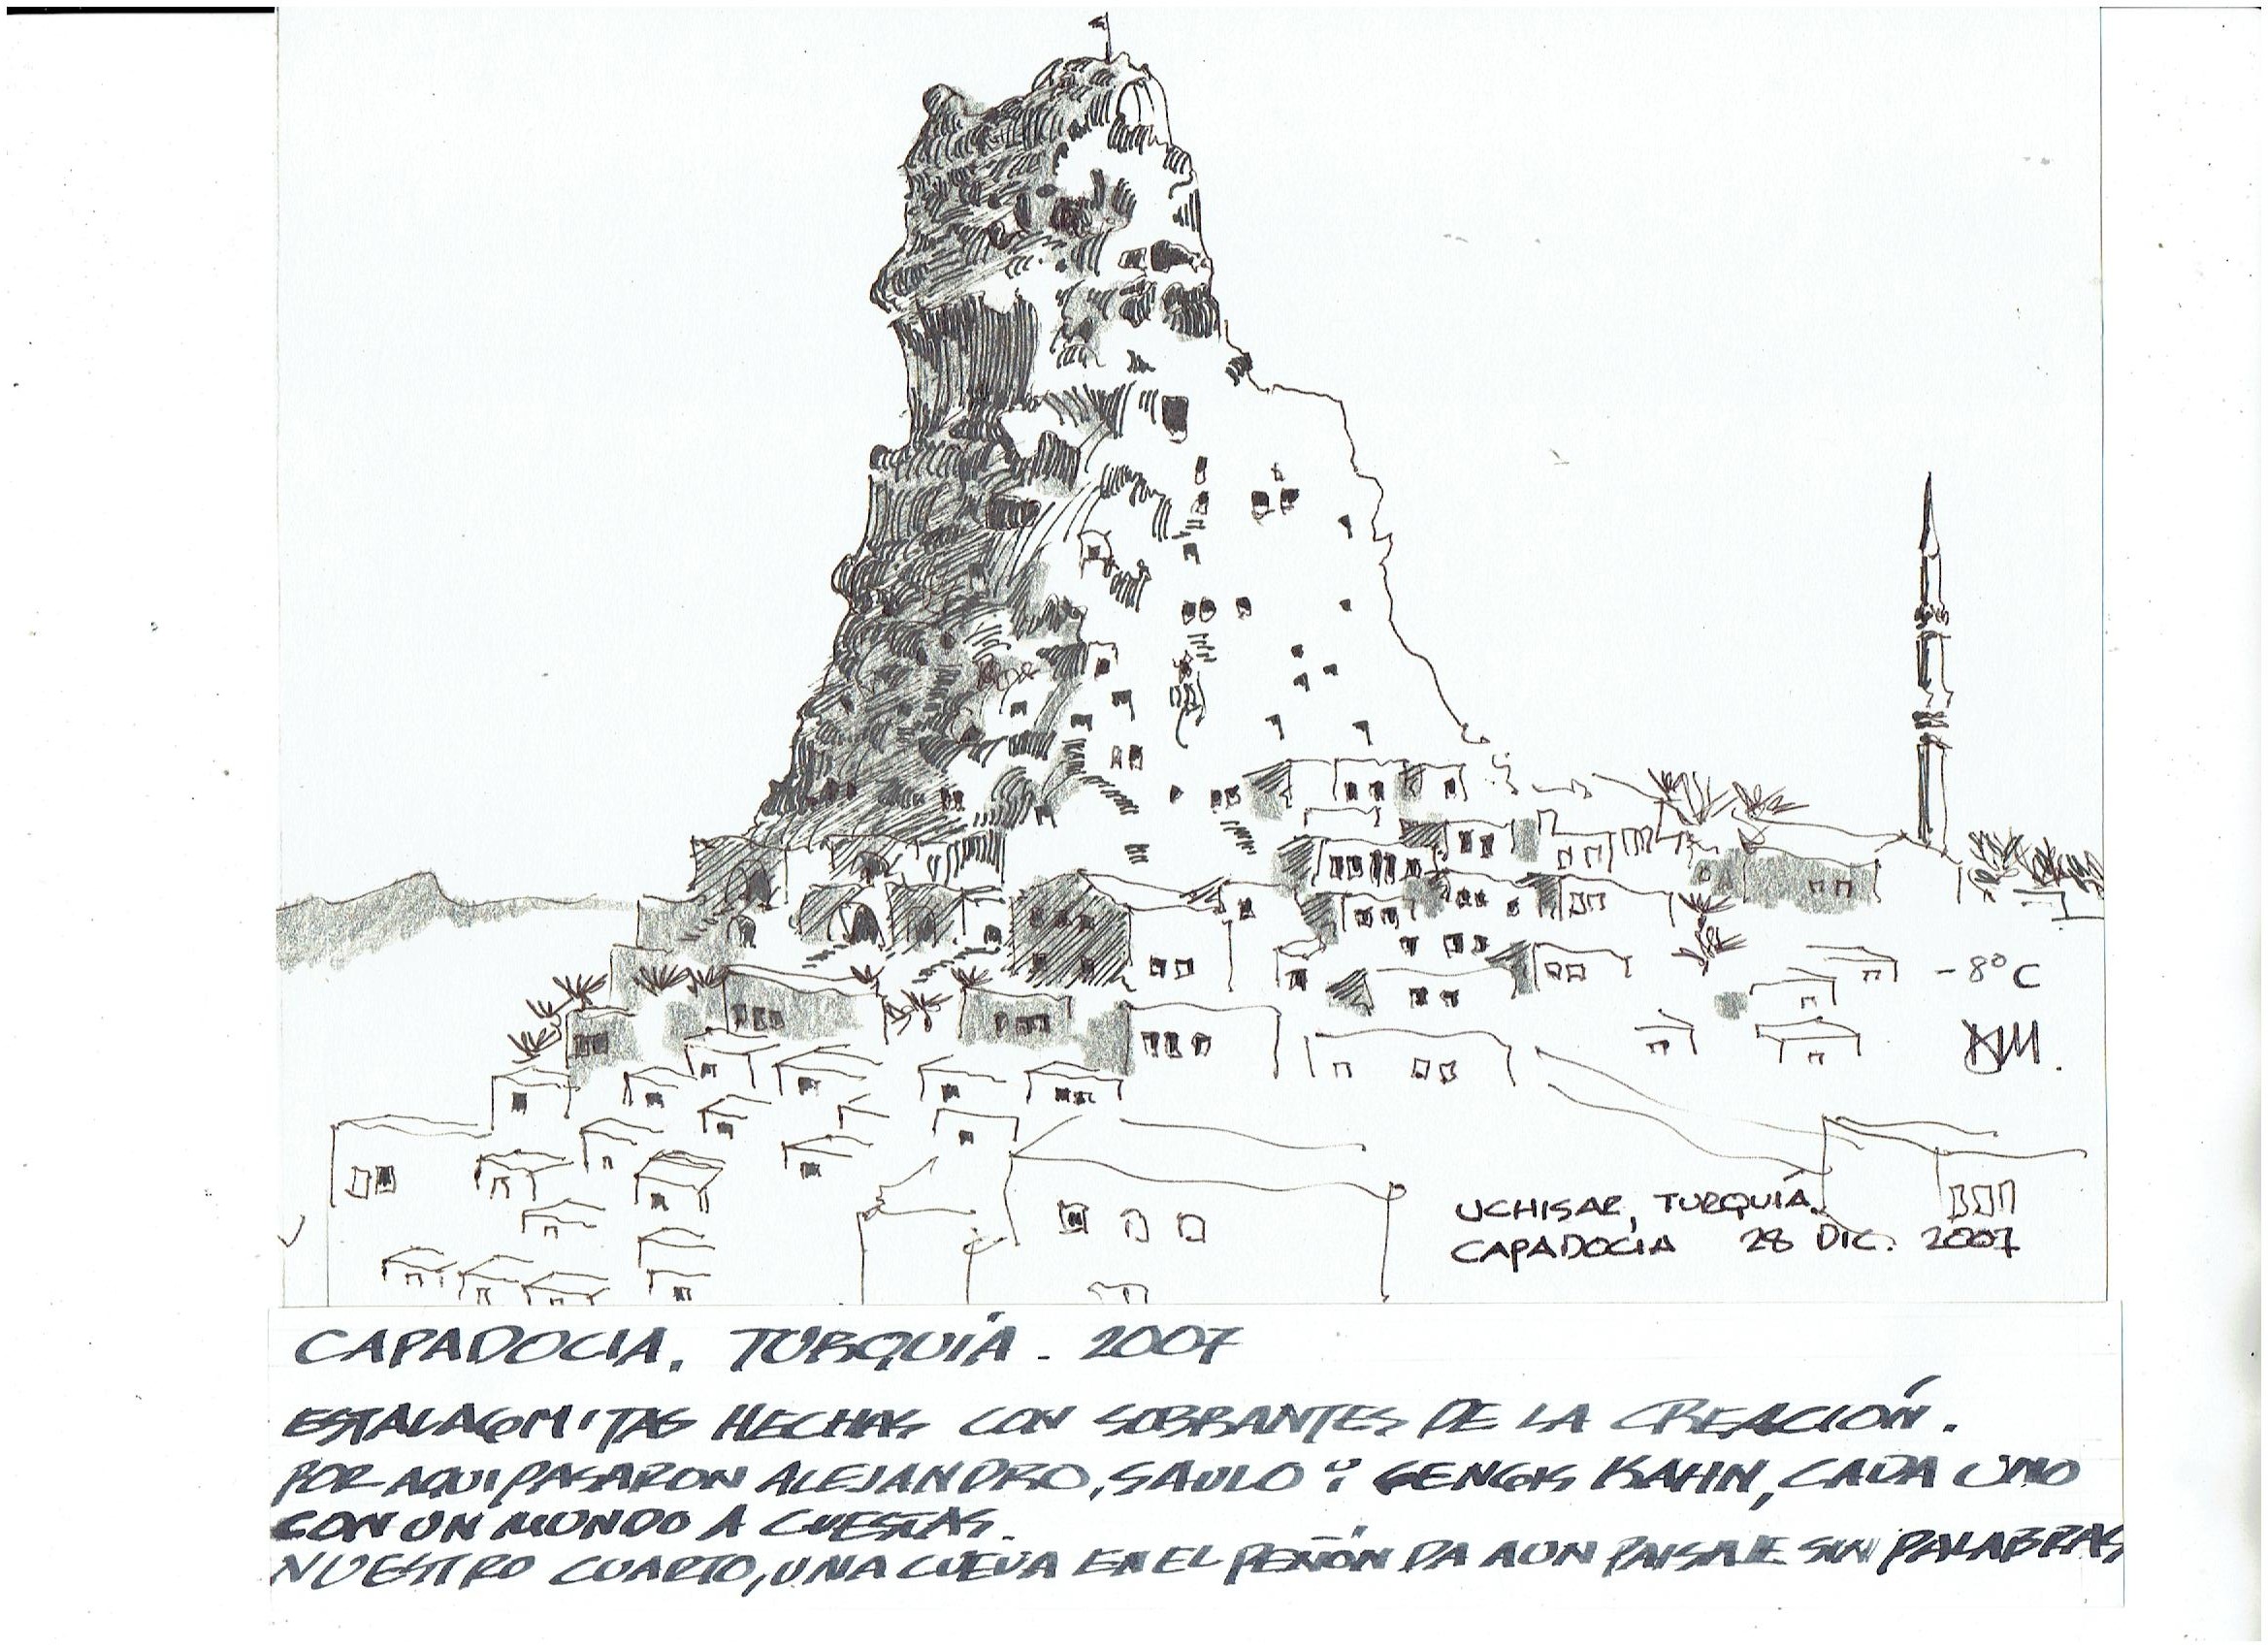 -8°C
UCHISAR, TURQUÍA.
CAPADOCIA 28 DIC. 2007
CAPADOCIA. TURQUÍA - 2007
ESTALAGMITAS HECHAS CON SOBRANTES DE LA CREACIÓN.
POR AQUI PASARON ALEJANDRO, SAULO Y GENGIS KAHN, CADA UNO
CON UN MUNDO A CUESTAS.
NUESTRO CUARTO, UNA CUEVA EN EL PEÑÓN DA A UN PAISAJE SIN PALABRAS